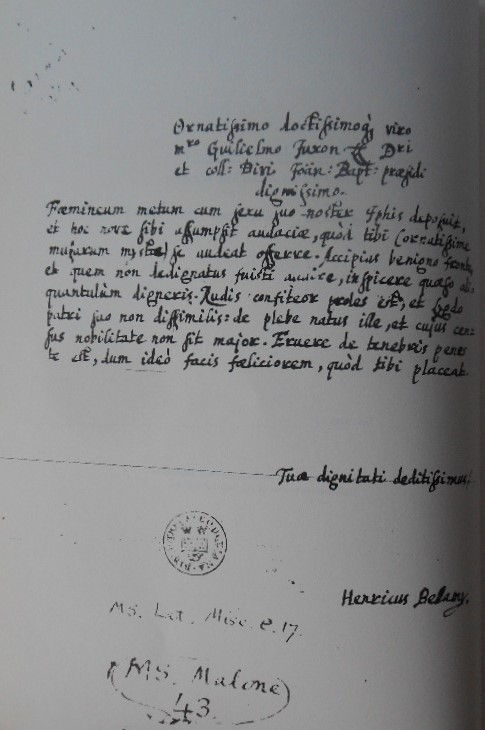 Ornatissimo doctissimoq̨ viro
mʳᵒ Guilielmo Juxon Dri
et coll: Divi Joān: Bapt: præsidi
dignissimo.
Fæmineum metum cum sexu suo noster Iphis deposuit,
et hoc novæ sibi assumpsit audaciæ, quòd tibi (ornatissime
musarum mysta) se audeat offerre. Accipias benigno fronte,
et quem non dedignatus fuisti audire, inspicere quæso
quantulùm digneris. Rudis confiteor proles est, et
patri suo non dissimilis: de plebe natus ille, et cujus cen
sus nobilitate non sit major. Eruere de tenebris penes
te est, dum ideò facis fæliciorem, quòd tibi placeat.
Tuæ dignitati deditissimus
Henricus Bellamy.
MS. Lat. Misc. e. 17.
MS. Malone
43